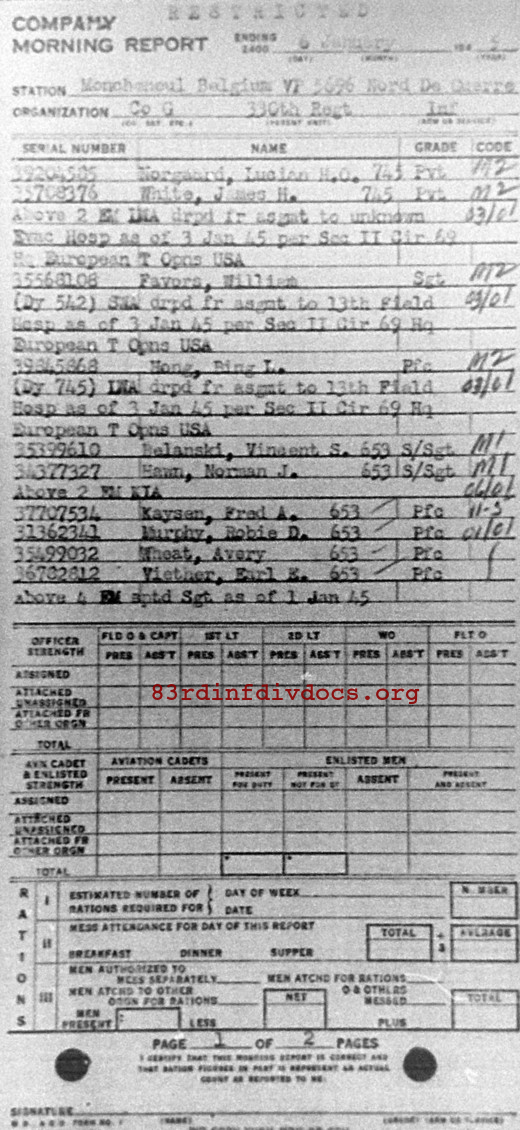 RESTRICTED
COMPANY
MORNING REPORT ENDING 2400 6 January 194 5
(DAY) (MONTH) (YEAR)
STATION Belgium VP 5696 Nord De Guerre
ORGANIZATION Co G 330th Regt Inf
SERIAL NUMBER NAME GRADE CODE
39204585 Norgaard, Lucian H.O. 745 Pvt M2
35708376 White, James H. 745 Pvt M2
Above 2 EM LWA drpd fr asgmt to unknown 03/01
Evac Hosp as of 3 Jan 45 per Sec II Cir 69
Hq European T Opns USA
35568108 Favors, William Sgt M2
(Dy 542) drpd fr asgmt to 13th Field 03/01
Hosp as of 3 Jan 45 per Sec II Cir 69 Hq
European T Opns USA
39845868 Hong, Bing L. Pfc M2
(Dy 745) LWA drpd fr asgmt to 13th Field 03/01
Hosp as of 3 Jan 45 per Sec II Cir 69 Hq
European T Opns USA
35399610 Belanski, Vincent S. 653 S/Sgt M1
34377327 Hawn, Norman J. 653 S/Sgt M1
Above 2 EM KIA 06/01
37707534 Kaysen, Fred A. 653 Pfc 11-5
31362341 Murphy, Robie D. 653 Pfc 01/01
35499032 Wheat, Avery 653 Pfc
36782812 Viether, Earl E. 653 Pfc
Above 4 EM aptd Sgt as of 1 Jan 45
OFFICER STRENGTH FLD O & CAPT 1ST LT 2D LT WO FLT O
PRES ABS'T PRES ABS'T PRES ABS'T PRES ABS'T PRES ABS'T
ASSIGNED
ATTACHED UNASSIGNED
83rdinfdivdocs.org
ATTACHED FR OTHER ORGN
TOTAL
AVN CADET & ENLISTED STRENGTH AVIATION CADETS ENLISTED MEN
PRESENT ABSENT PRESENT FOR DUTY PRESENT NOT FOR DY ABSENT PRESENT AND ABSENT
ASSIGNED
ATTACHED UNASSIGNED
ATTACHED FR OTHER ORGN
TOTAL
RATIONS
I ESTIMATED NUMBER OF RATIONS REQUIRED FOR DAY OF WEEK NUMBER
DATE
II MESS ATTENDANCE FOR DAY OF THIS REPORT TOTAL ÷ 3 AVERAGE
BREAKFAST DINNER SUPPER
III MEN AUTHORIZED TO MESS SEPARATELY MEN ATCHD FOR RATIONS
MEN ATCHD TO OTHER ORGN FOR RATIONS NET O & OTHERS MESSED TOTAL
MEN PRESENT LESS PLUS
PAGE 1 OF 2 PAGES
I CERTIFY THAT THIS MORNING REPORT IS CORRECT AND
THAT RATION FIGURES IN PART III REPRESENT AN ACTUAL
COUNT AS REPORTED TO ME:
SIGNATURE
W. D., A. G. O. FORM NO. 1 (NAME) (GRADE) (ARM OR SERVICE)